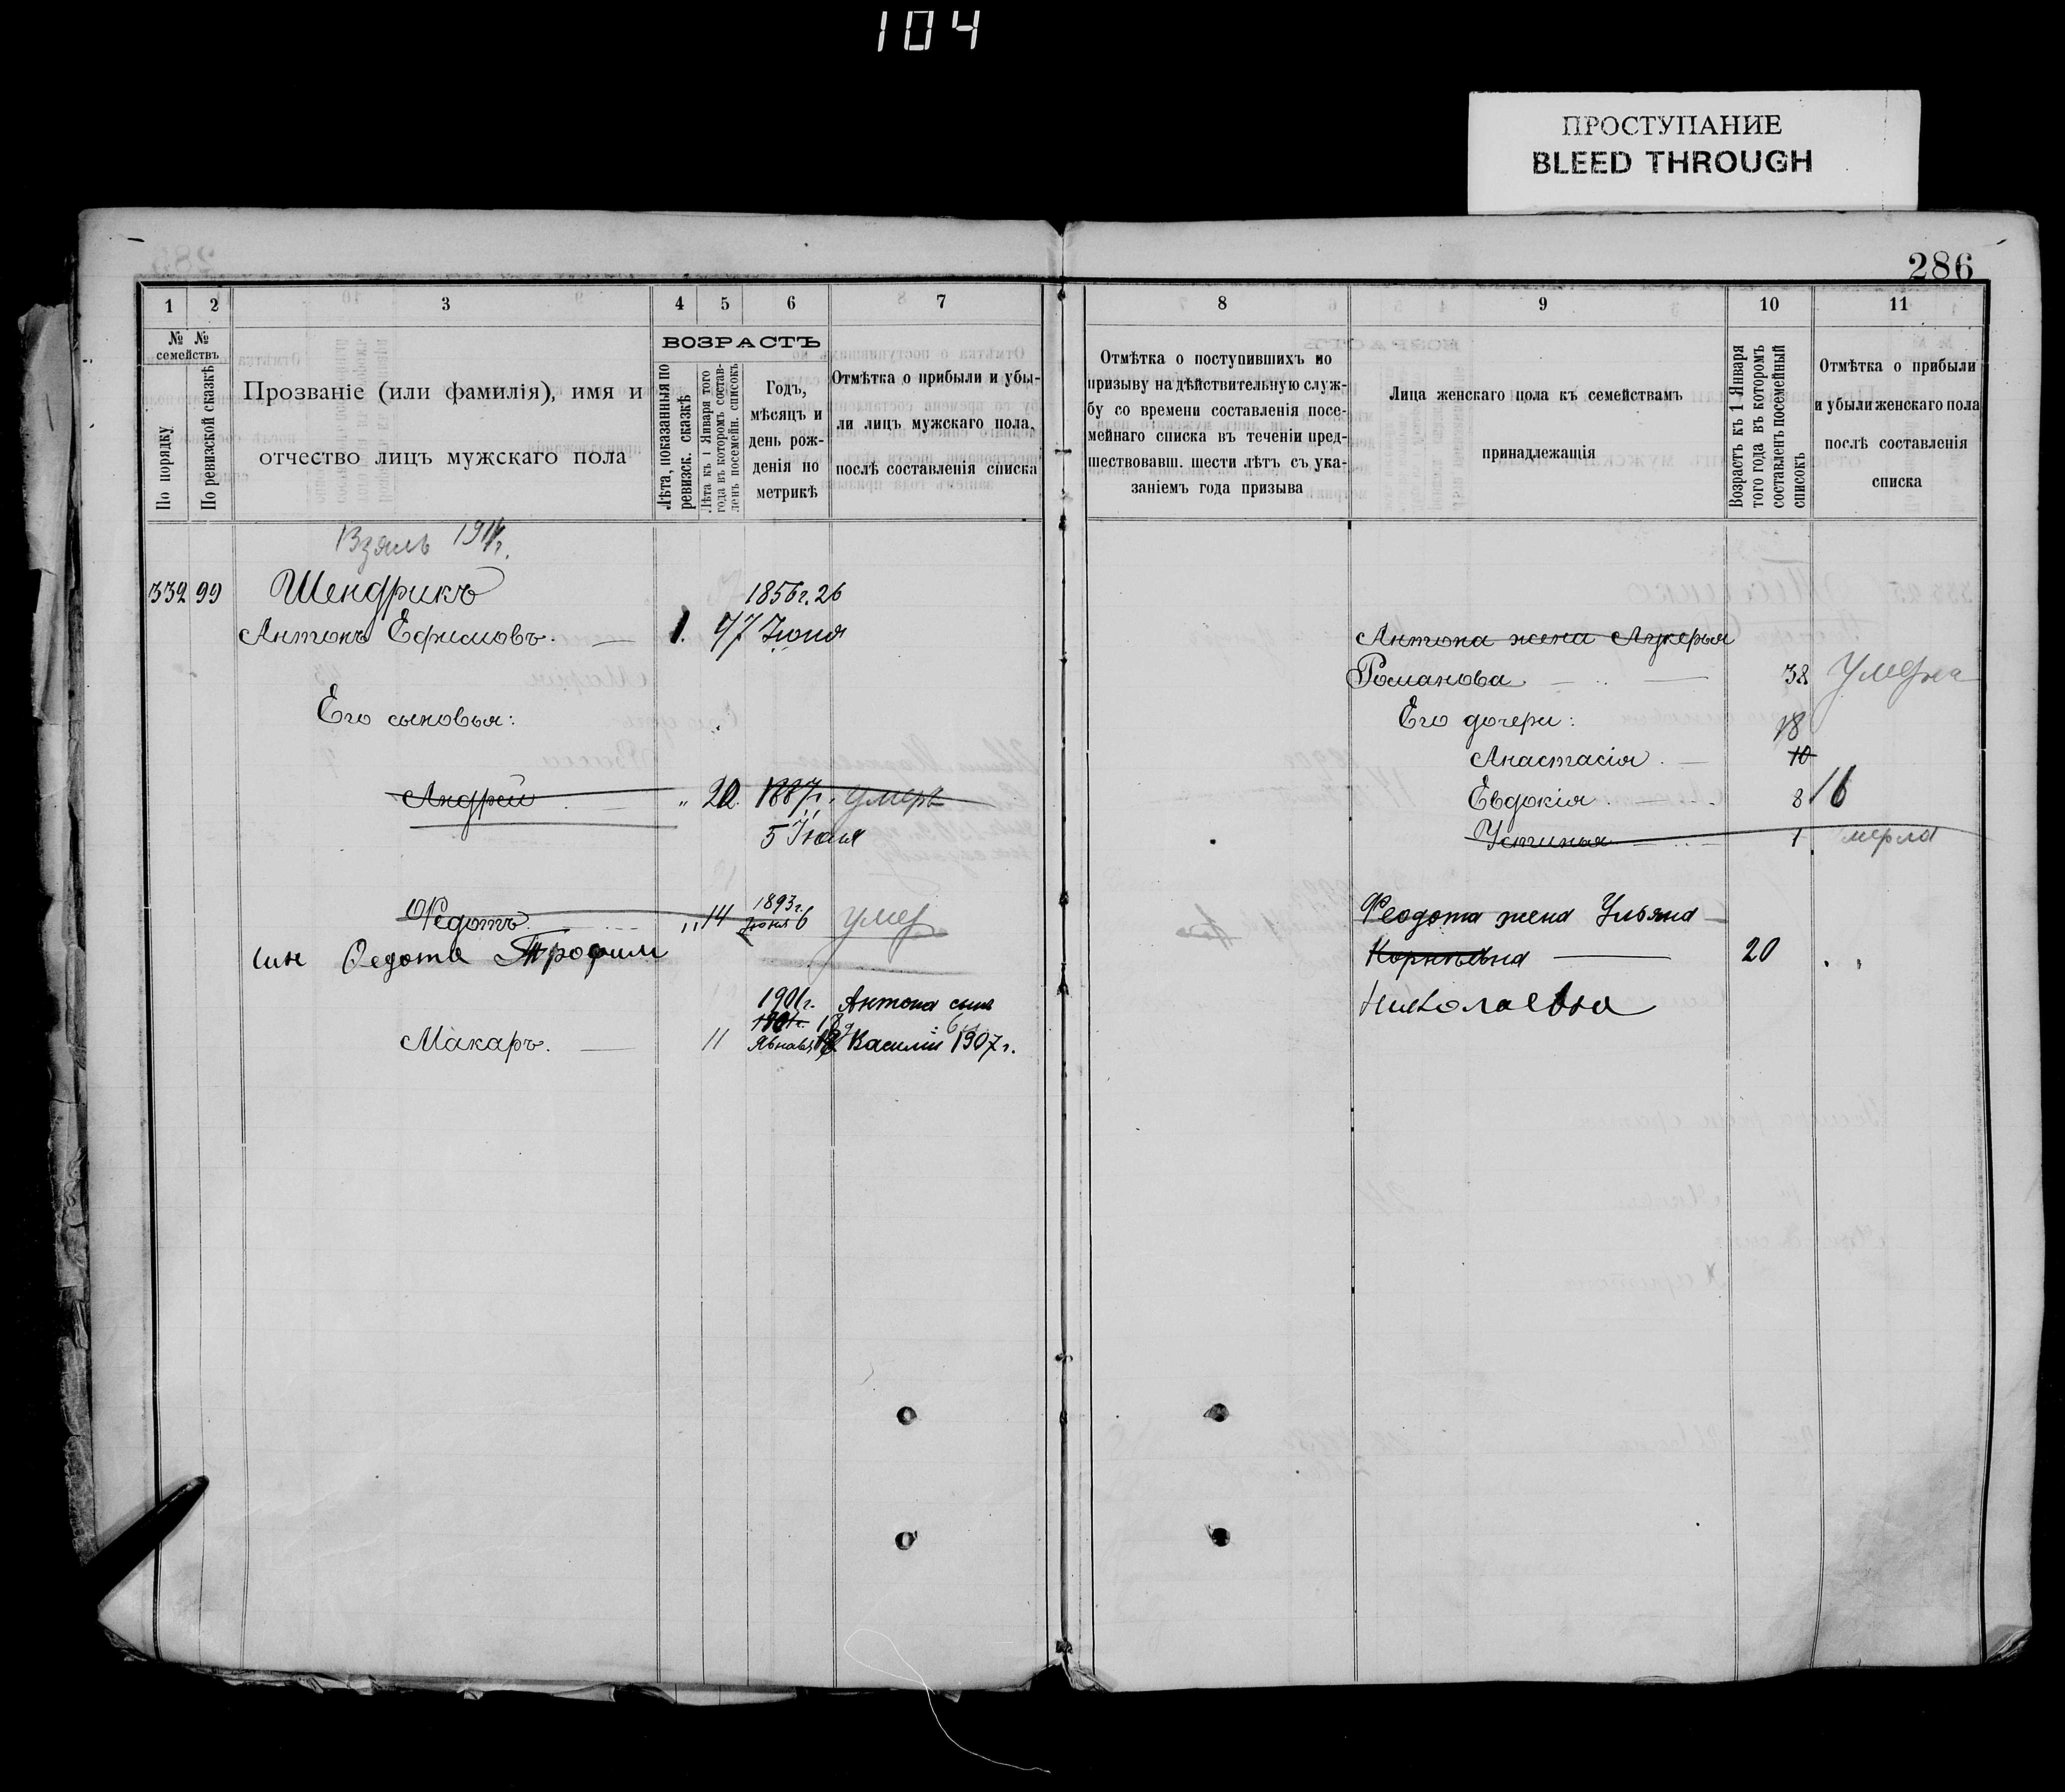 104
ПРОСТУПАНИЕ
BLEED THROUGH
286
1 2 3 4 5 6 7
№ № семействъ
По порядку
По ревизской сказкѣ
Прозваніе (или фамилія), имя и
отчество лицъ мужскаго пола
ВОЗРАСТЪ
Лѣта, показанныя по
ревизск. сказкѣ
Лѣта къ 1 Января того
года въ которомъ состав-
ленъ посемейн. списокъ
Годъ,
мѣсяцъ и
день рож-
денія по
метрикѣ
Отмѣтка о прибыли и убы-
ли лицъ мужскаго пола,
послѣ составленія списка
Взялъ 1914г.
332 99 Шендрикъ 1856г. 26
Антонъ Ефимовъ. 1. 47 Іюня
Его сыновья:
Андрей " 20 1887г. умеръ
5 Іюля
Ѳедотъ " 14 1893г. Іюня 6 умер
сын Федота Трофим
1901г. Антона сын
Макаръ. 11 Василій 1907г.
8 9 10 11
Отмѣтка о поступившихъ по
призыву на дѣйствительную служ-
бу со времени составленія посе-
мейнаго списка въ теченіи пред-
шествовавш. шести лѣтъ съ ука-
заніемъ года призыва
Лица женскаго пола къ семействамъ
принадлежащія
Возрастъ къ 1 Января
того года въ которомъ
составленъ посемейный
списокъ
Отмѣтка о прибыли
и убыли женскаго пола
послѣ составленія
списка
Антона жена Лукерья
Романова 38 умерла
Его дочери: 18
Анастасія 10
Евдокія 8 16
Устинья 1 умерла
Феодота жена Ульяна
Корнѣевна 20
Николаевна